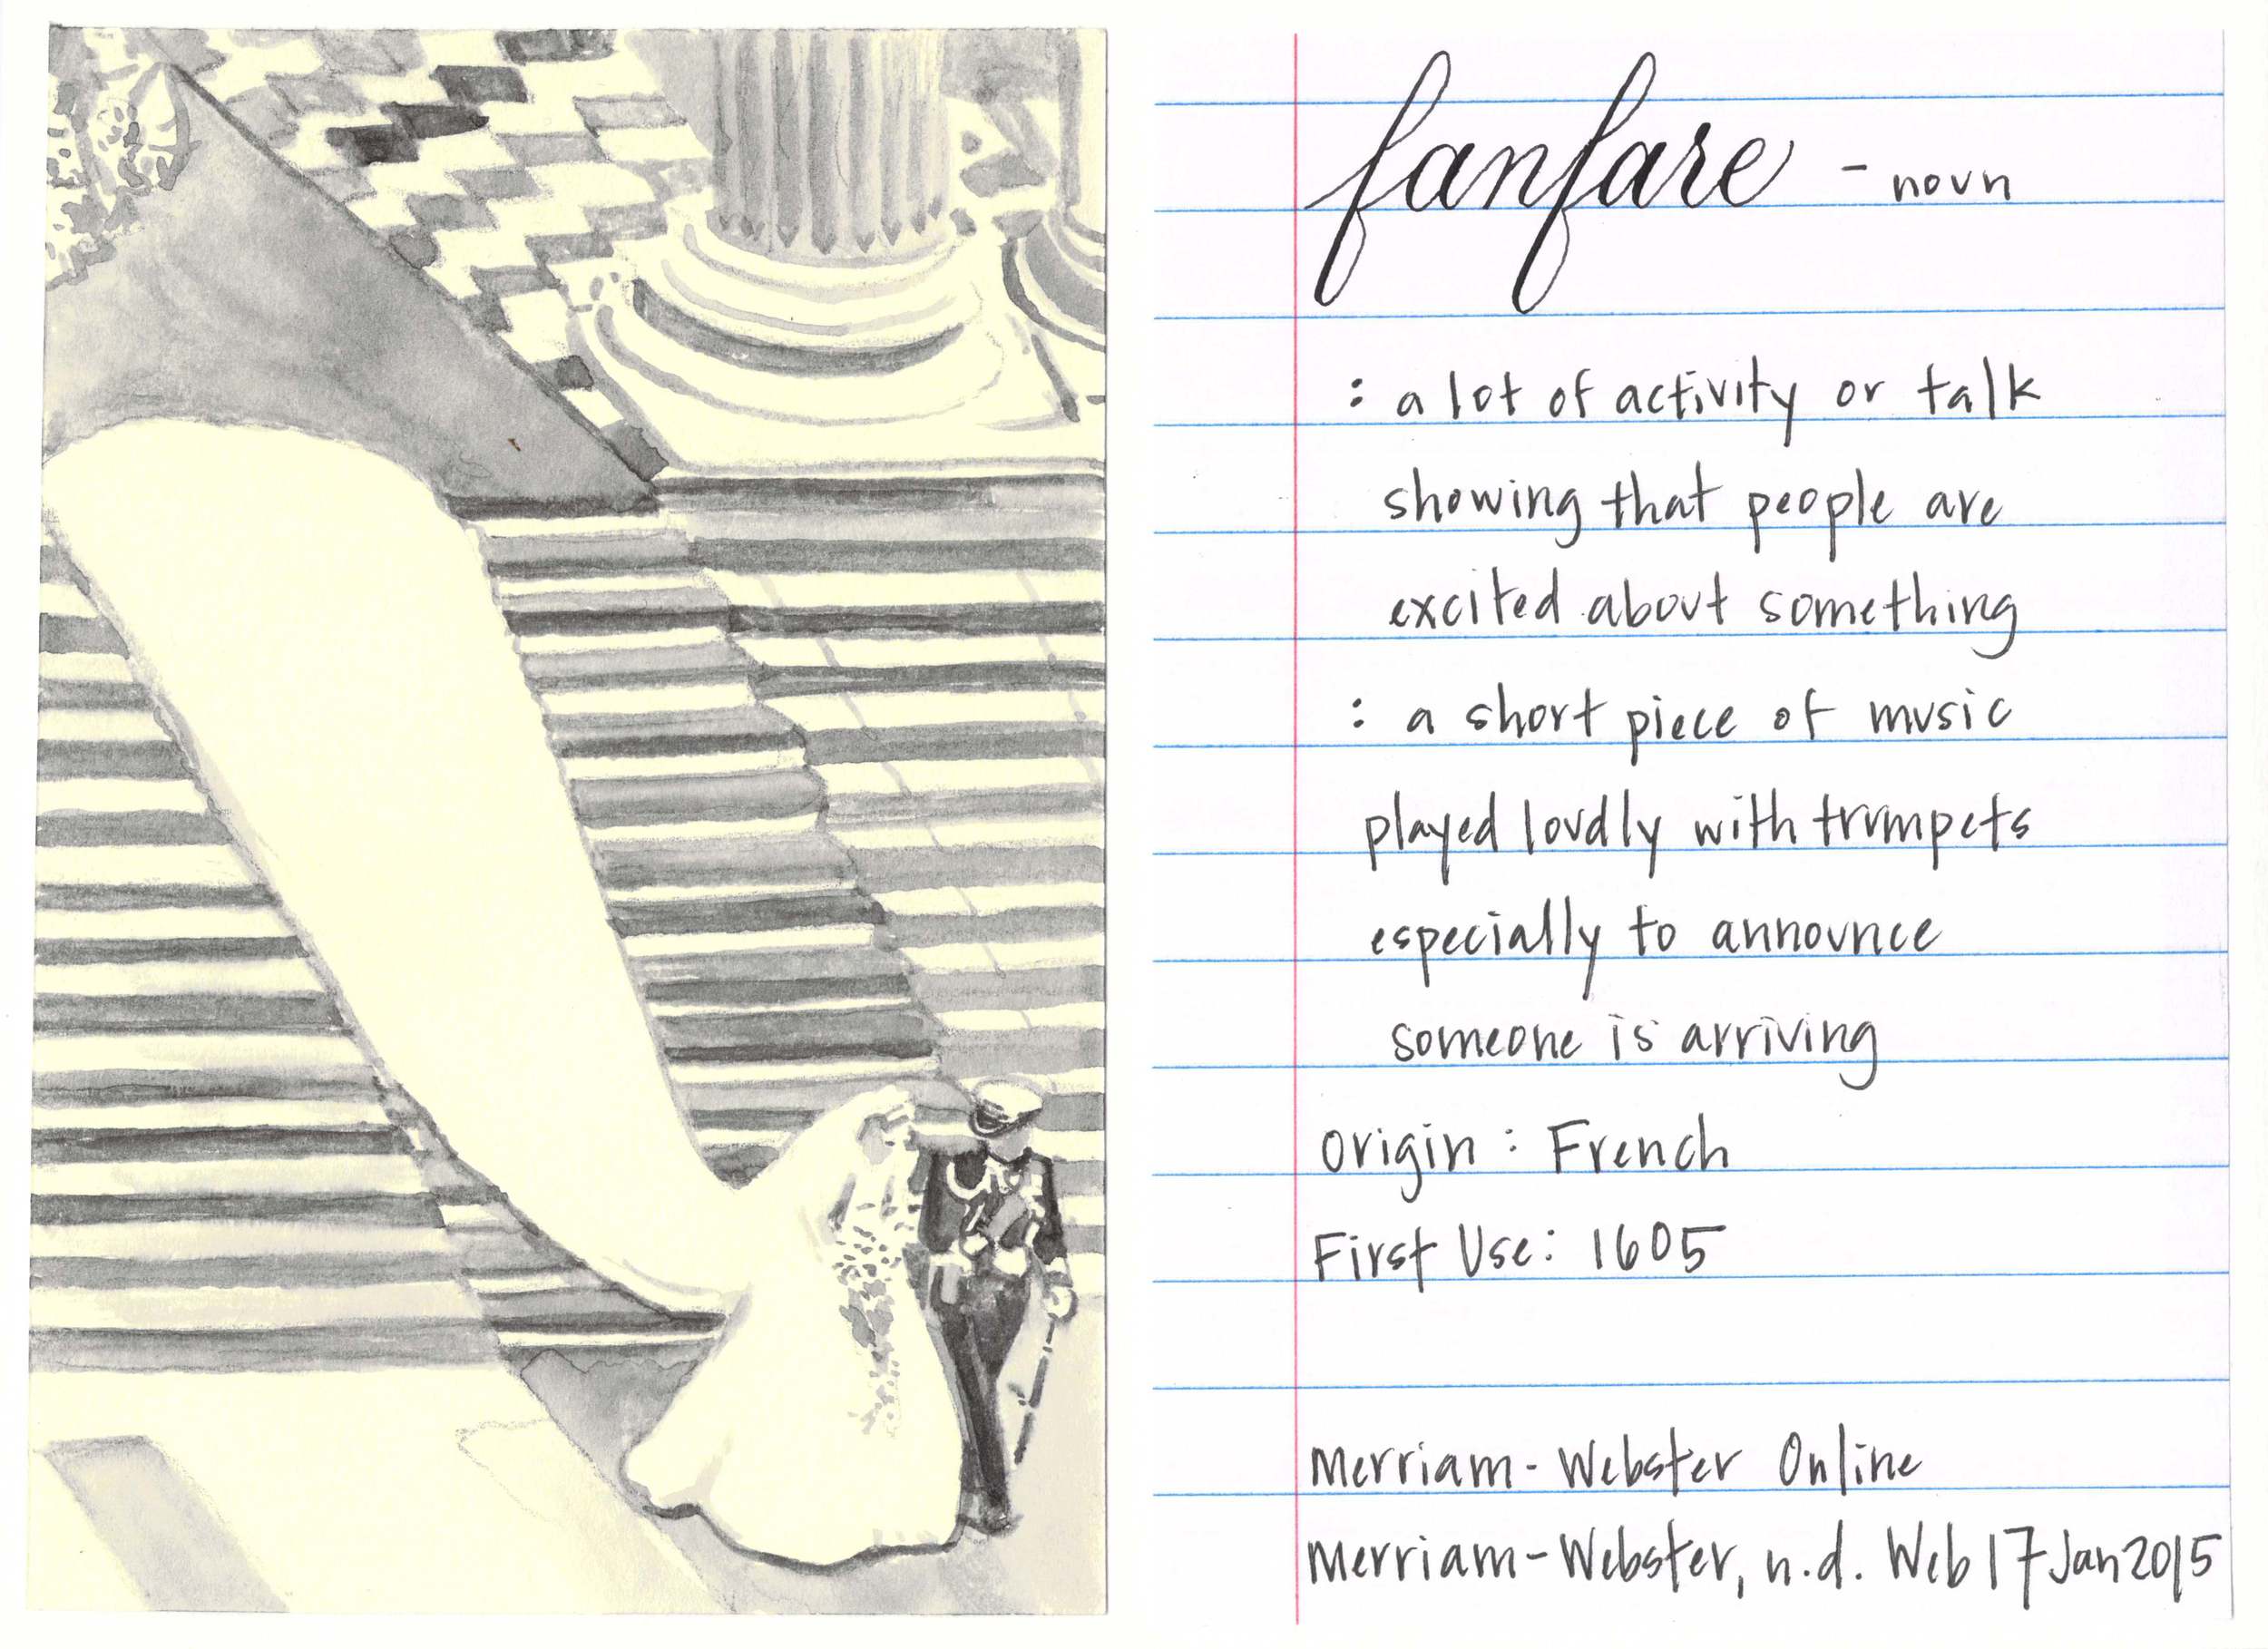 fanfare - noun
: a lot of activity or talk
showing that people are
excited about something
: a short piece of music
played loudly with trumpets
especially to announce
someone is arriving
Origin : French
First Use: 1605
Merriam-Webster Online
Merriam-Webster, n.d. Web 17 Jan 2015